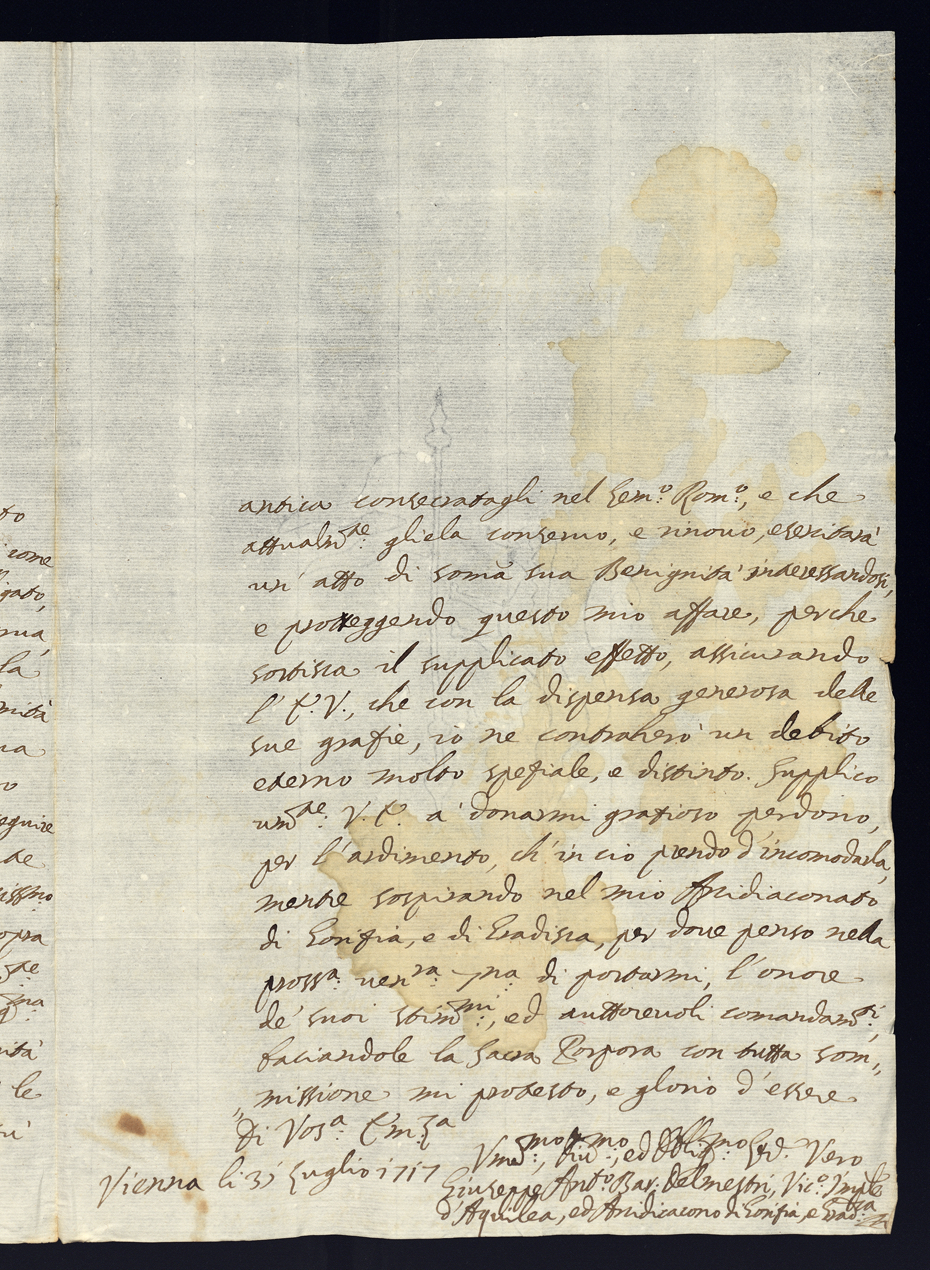 to
come
gato,
la
mità
eguire
de
issimo
opra
le
antica consecratagli nel Sem:º Rom:º, e che
attualm:te gliela conservo, e rinovo, esercitarà
un' atto di somã sua Benignità interessandosi,
e proteggendo questo mio affare, perche
sortisca il supplicato effetto, assicurando
l' E. V., che con la dispensa generosa delle
sue grafie, io ne contraherò un debito
eterno molto spefiale, e distinto. Supplico
um:te V. E. à donarmi gratioso perdono,
per l'ardimento, ch' in cio prendo d'incomodarla,
mentre sospirando nel mio Arcidiaconato
di Gorifia, e di Gradisca, per dove penso nella
pross:a ven:ra di portarmi, l'onore
de' suoi stim:mi, ed auttorevoli comandam:ti,
faciandole la Sacra Porpora con tutta som„
„missione mi protesto, e glorio d'essere
Di Vos:a Em:za
Vienna li 31 Luglio 1717
Um:mo, Div:mo, ed Obblig:mo Ser. Vero
Giuseppe Ant:o Bar. Delmestri, Vic:o Imp:le
d'Aquilea, ed Arcidiacono di Gorifia, e Grad:sca